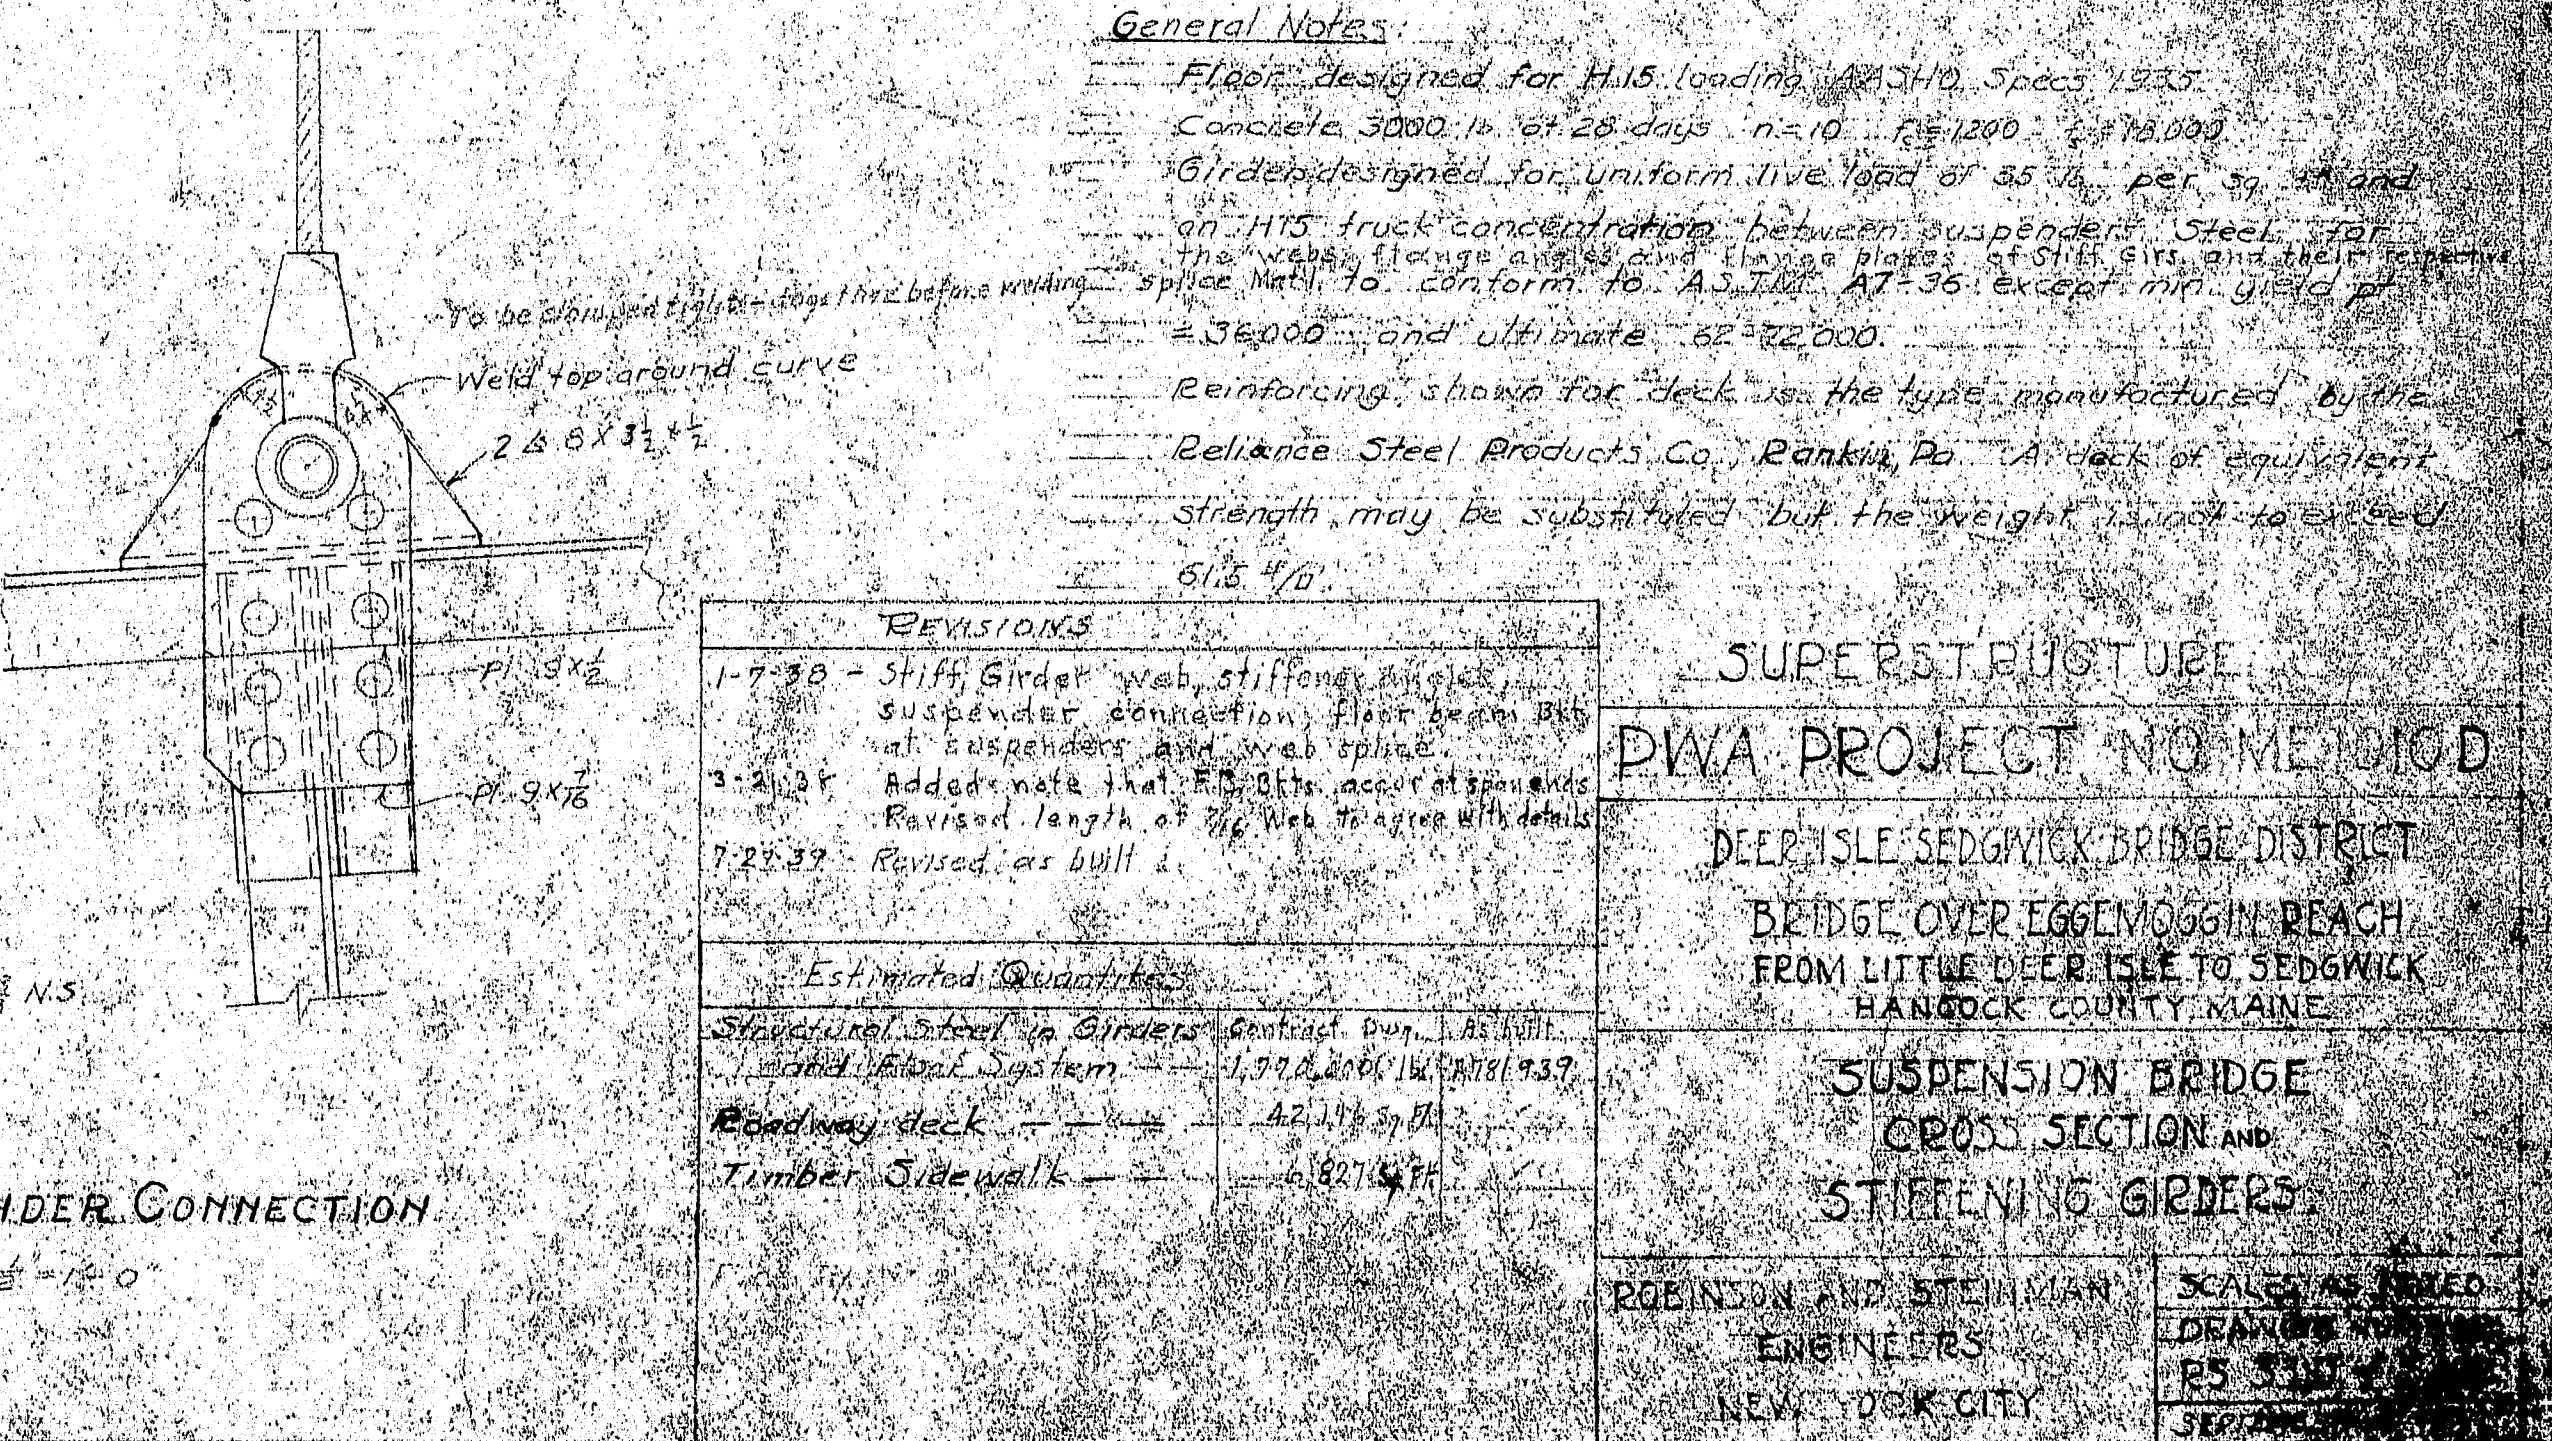 General Notes:
Floor designed for H15 loading AASHO Specs 1935.
Concrete 3000 lb. at 28 days n=10 fc=1200 fs=18,000
Girder designed for uniform live load of 35 lb. per sq. ft. and
an H15 truck concentration between suspenders. Steel for
the webs, flange angles and flange plates of Stiff. Girs. and their respective
splice Mat'l. to conform to A.S.T.M. A7-36 except min. yield pt
= 36,000 and ultimate 62-72,000.
Reinforcing shown for deck is the type manufactured by the
Reliance Steel Products Co., Rankin, Pa. A deck of equivalent
strength may be substituted but the weight is not to exceed
51.5 #/□'
To be clamped tight before welding
Weld top around curve
2 ∠s 8 X 3½ x ½
Pl. 9 x ½
Pl. 9 X 7/16
N.S.
NDER CONNECTION
= 1'-0"
REVISIONS
1-7-38 - Stiff. Girder web, stiffener angles,
suspender connection, floor beam Bkt.
at suspenders and web splice.
3-21-38 Added note that F.B. Bkts. occur at span ends
Revised length of 7/16 Web to agree with details
7-29-39 Revised as built
Estimated Quantites
Structural Steel in Girders Contract Dwg. As built
and Floor System -- 1,770,000 lb. 1,781,939
Roadway deck --- 42,146 sq. ft.
Timber Sidewalk -- 6,827 sq. Ft.
SUPERSTRUCTURE
PWA PROJECT NO ME D
DEER ISLE SEDGWICK BRIDGE DISTRICT
BRIDGE OVER EGGEMOGGIN REACH
FROM LITTLE DEER ISLE TO SEDGWICK
HANCOCK COUNTY, MAINE
SUSPENSION BRIDGE
CROSS SECTION AND
STIFFENING GIRDERS.
ROBINSON AND STEINMAN
ENGINEERS
NEW YORK CITY
SCALES AS NOTED
DRAWING
RS